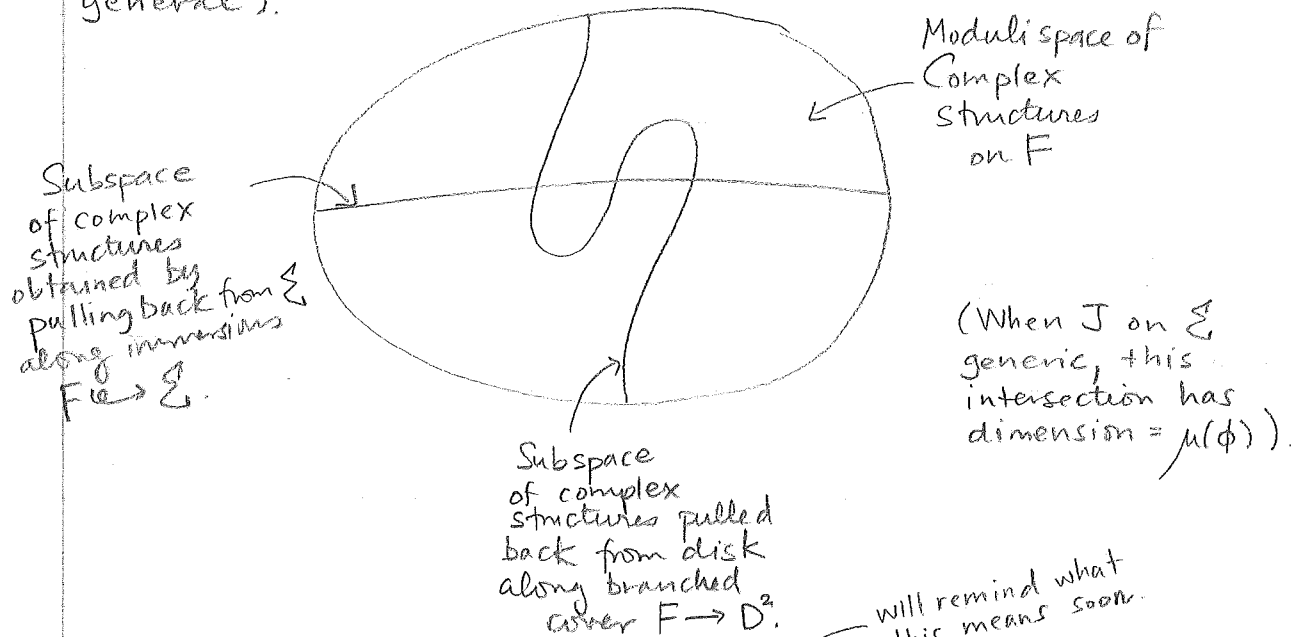 general).
Moduli space of
Complex
structures
on F
Subspace
of complex
structures
obtained by
pulling back from Σ
along immersions
F ↬ Σ.
(When J on Σ
generic, this
intersection has
dimension = μ(ϕ)).
Subspace
of complex
structures pulled
back from disk
along branched
cover F → D².
will remind what
this means soon.